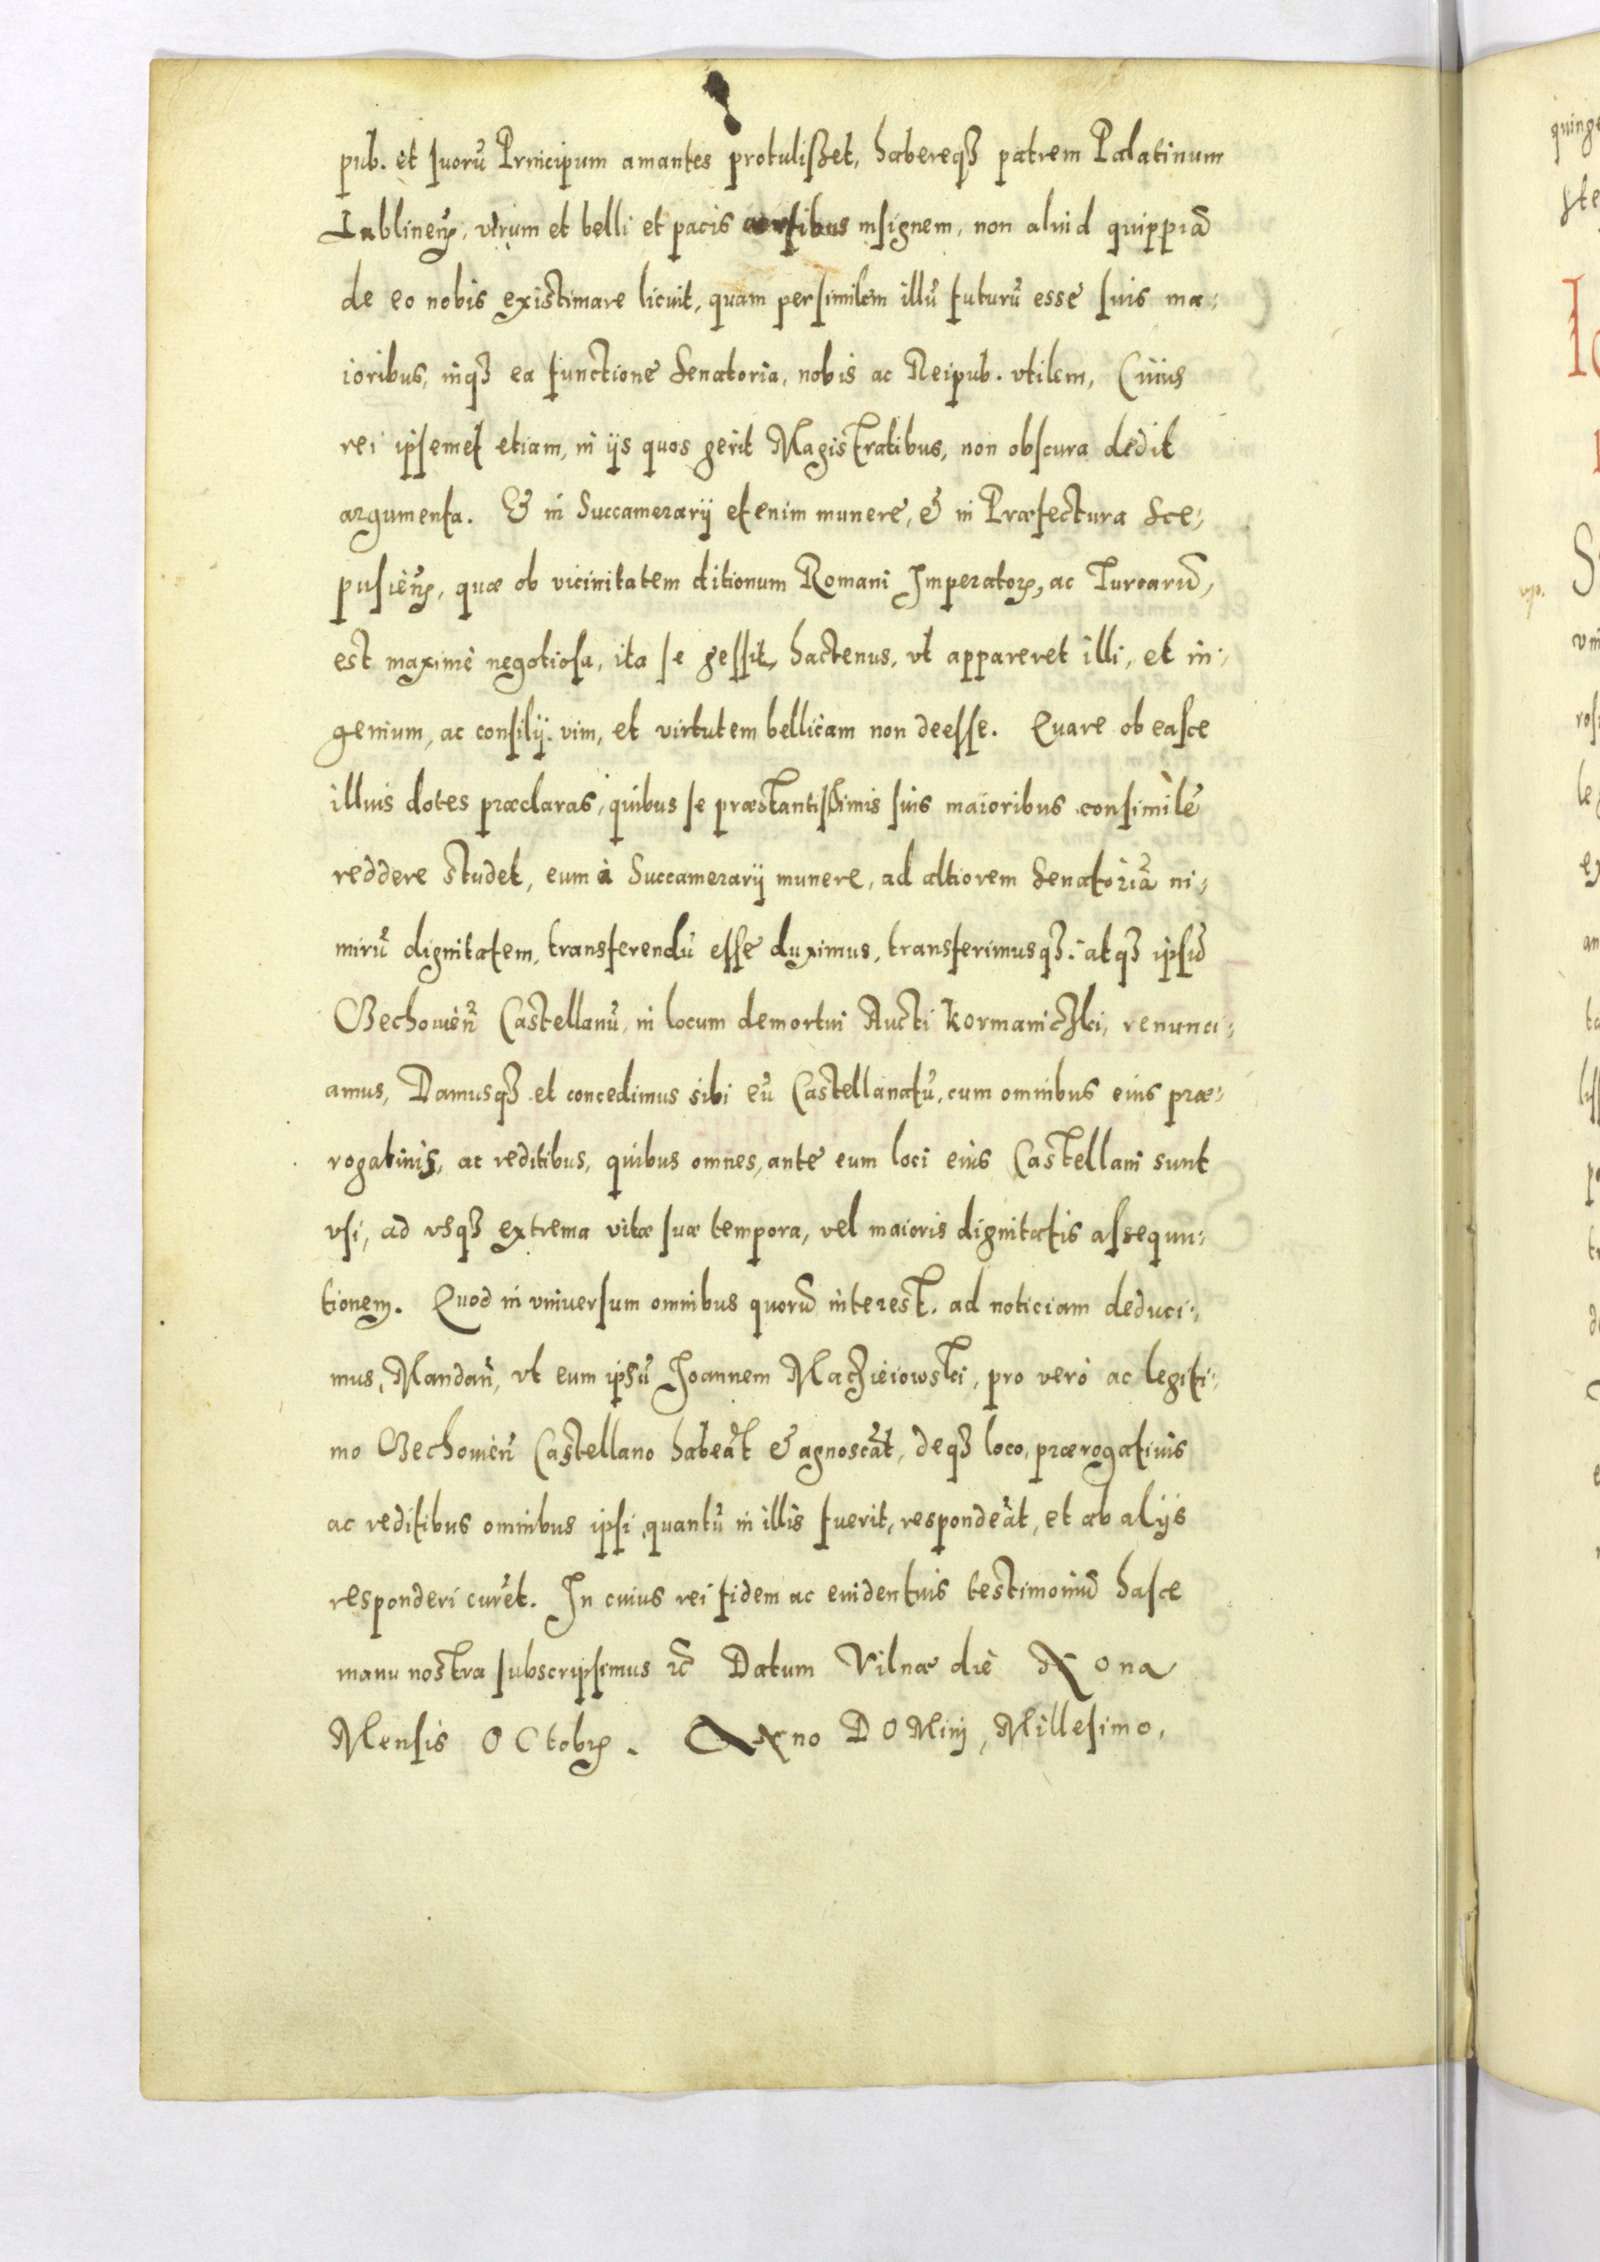 pub. et suorũ Principum amantes protulißet, habereqꝫ patrem Palatinum
Lublineñ, virum et belli et pacis artibus insignem, non aliud quippiã
de eo nobis existimare licuit, quam persimilem illũ futurũ esse suis ma-
ioribus, inqꝫ ea functione Senatoria, nobis ac Reipub. vtilem, Cuius
rei ipsemet etiam, in ijs quos gerit Magistratibus, non obscura dedit
argumenta. & in Succamerarij etenim munere, & in Præfectura Sce-
pusieñ, quæ ob vicinitatem ditionum Romani Imperatorꝭ, ac Turcarũ,
est maxime negotiosa, ita se gessit hactenus, vt appareret illi, et in-
genium, ac consilij vim, et virtutem bellicam non deesse. Quare ob easce
illius dotes præclaras, quibus se præstantißimis suis maioribus consimilẽ
reddere studet, eum à Succamerarij munere, ad altiorem Senatoriã ni-
mirũ dignitatem, transferendũ esse duximus, transferimusqꝫ. atqꝫ ipsũ
Zechowieñ Castellanũ, in locum demortui Aucti Kormaniczki, renunci-
amus, Damusqꝫ et concedimus sibi eũ Castellanatũ, cum omnibus eius præ-
rogatiuis, ac reditibus, quibus omnes, ante eum loci eius Castellani sunt
vsi, ad vsqꝫ extrema vitæ suæ tempora, vel maioris dignitatis assequu-
tionem. Quod in vniuersum omnibus quorũ interest. ad noticiam deduci-
mus, Mandañ, vt eum ipsũ Joannem Maczieiowski, pro vero ac legiti-
mo Zechowieñ Castellano habeãt & agnoscãt, deqꝫ loco, prærogatiuis
ac reditibus omnibus ipsi, quantũ in illis fuerit, respondeãt, et ab alijs
responderi curẽt. In cuius rei fidem ac euidentius testimoniũ hasce
manu nostra subscripsimus ꝛc̃ Datum Vilnæ die Nona
Mensis OCtobrꝭ. ANno DOMinj, Millesimo,